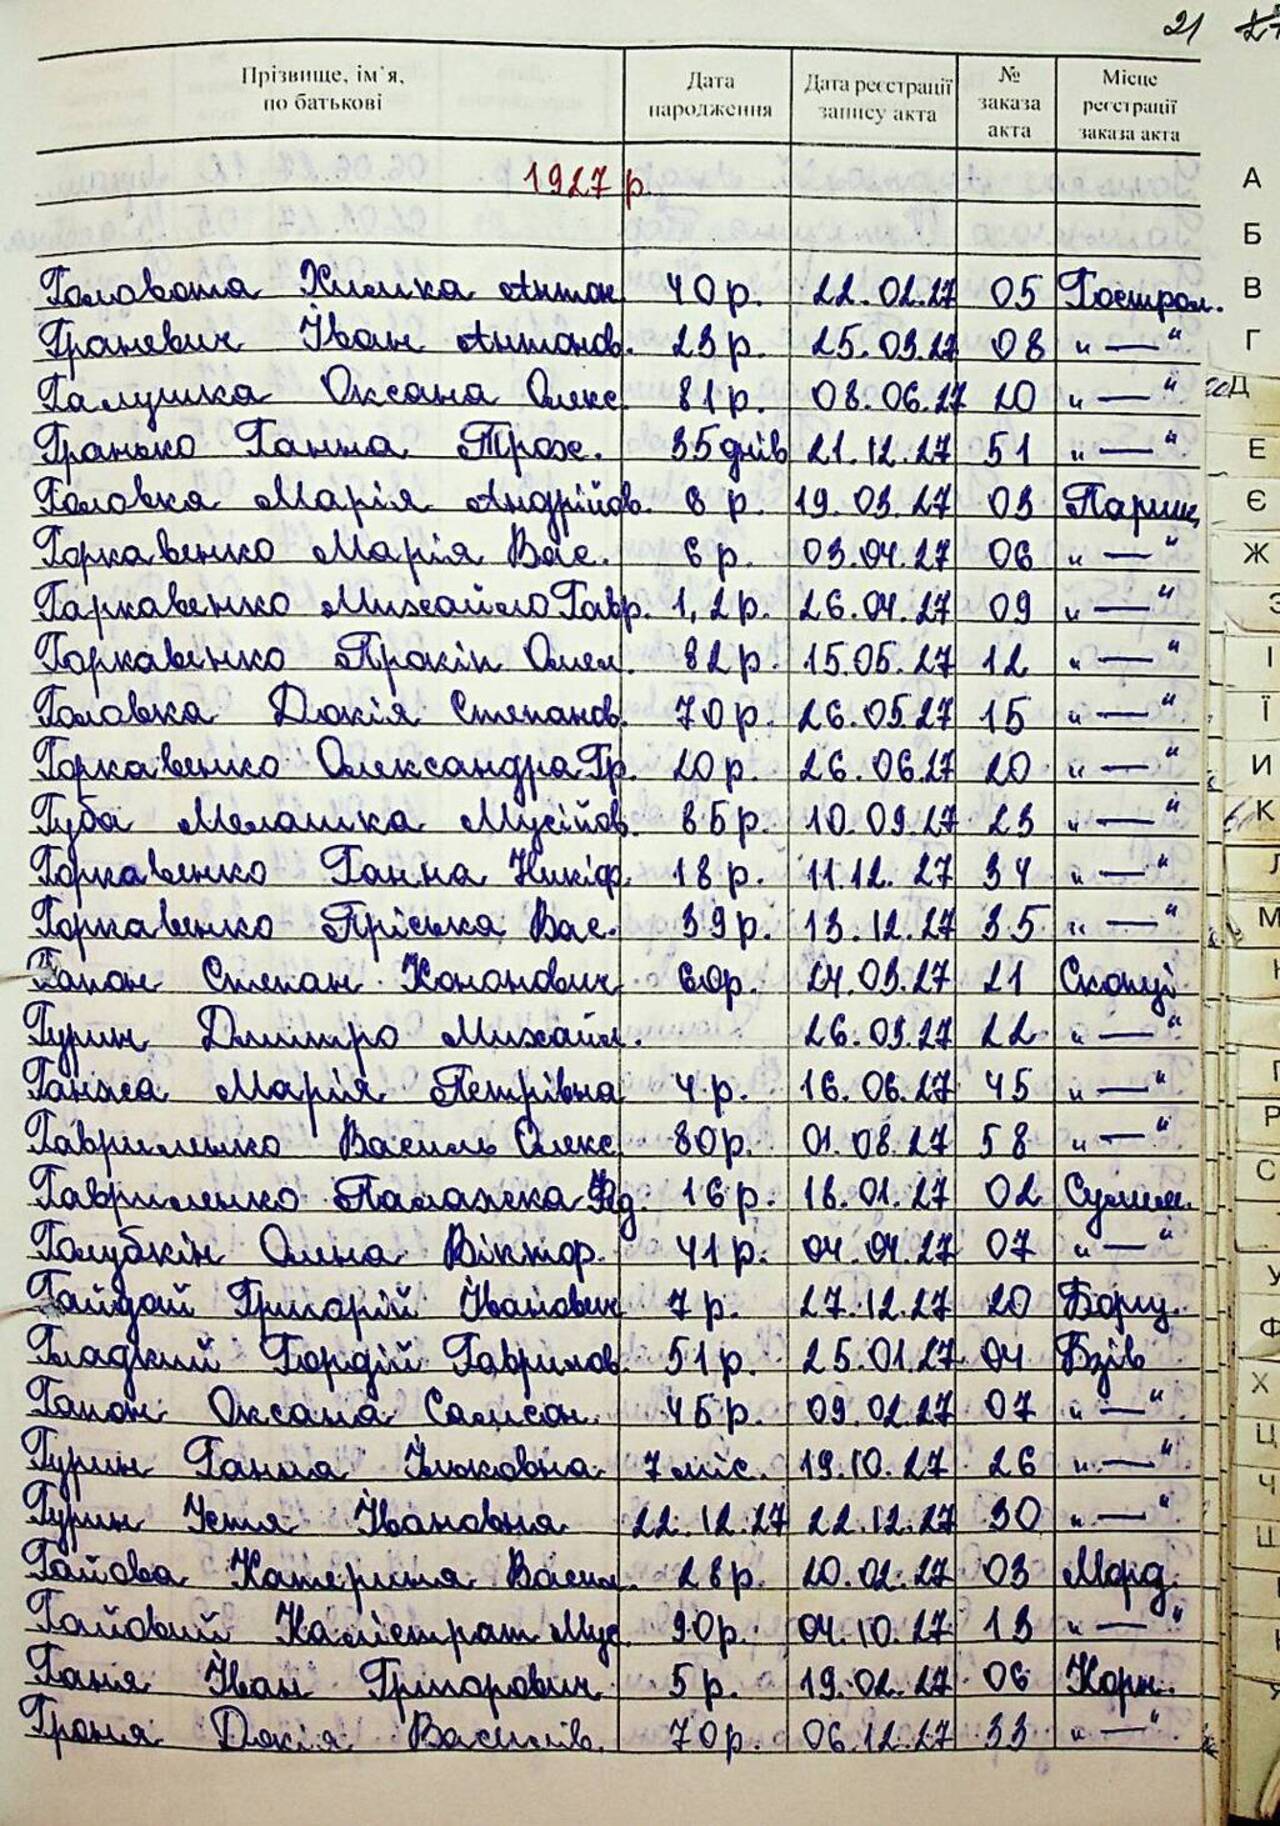 21 27
Прізвище, ім'я, по батькові Дата народження Дата реєстрації запису акта № заказа акта Місце реєстрації заказа акта
1927 р.
Головата Химка Антон. 40 р. 22.02.27 05 Гостpол.
Граневич Іван Антонов. 23 р. 25.03.27 08 „ — “
Галушка Оксана Олекс. 81 р. 08.06.27 20 „ — “
Гранько Ганна Трох. 35 днів 21.12.27 51 „ — “
Головка Марія Андрійов. 6 р. 19.03.27 03 Париш.
Горкавенко Марія Вас. 6 р. 03.04.27 06 „ — “
Гаркавенко Михайло Гавр. 1,2 р. 26.04.27 09 „ — “
Горкавенко Прокіп Омел. 82 р. 15.05.27 12 „ — “
Головка Докія Степанов. 70 р. 26.05.27 15 „ — “
Горкавенко Олександра Гр. 20 р. 26.06.27 20 „ — “
Губа Мелашка Мусійов. 85 р. 10.09.27 23 „ — “
Горкавенко Ганна Никіф. 18 р. 11.12.27 34 „ — “
Горкавенко Пріська Вас. 39 р. 13.12.27 35 „ — “
Гапон Степан Кононович 60р. 24.03.27 21 Скопці
Гурин Дмитро Михайл. 26.03.27 22 „ — “
Ганжа Марія Петрівна 4 р. 16.06.27 45 „ — “
Гавриленко Василь Олекс. 80 р. 01.08.27 58 „ — “
Гавриленко Палажка Фед. 16 р. 18.01.27 02 Сулим.
Голубкін Олена Віктор. 41 р. 04.04.27 07 „ — “
Гайдай Григорій Іванович 7 р. 27.12.27 20 Борщ.
Гладкий Гордій Гаврилов. 51 р. 25.01.27 04 Бзів
Гапон Оксана Самсон. 45 р. 09.02.27 07 „ — “
Гурин Ганна Ільковна 7 міс. 19.10.27 26 „ — “
Гурин Устя Івановна 22.12.27 22.12.27 30 „ — “
Гайова Катерина Васил. 28 р. 20.02.27 03 Морд.
Гайовий Калістрат Мус. 90 р. 04.10.27 13 „ — “
Ганя Іван Григорович 5 р. 19.02.27 06 Корн.
Гроня Докія Василів. 70 р. 06.12.27 33 „ — “
А
Б
В
Г
Д
Е
Є
Ж
З
І
Ї
И
К
Л
М
Н
П
Р
С
У
Ф
Х
Ц
Ч
Ш